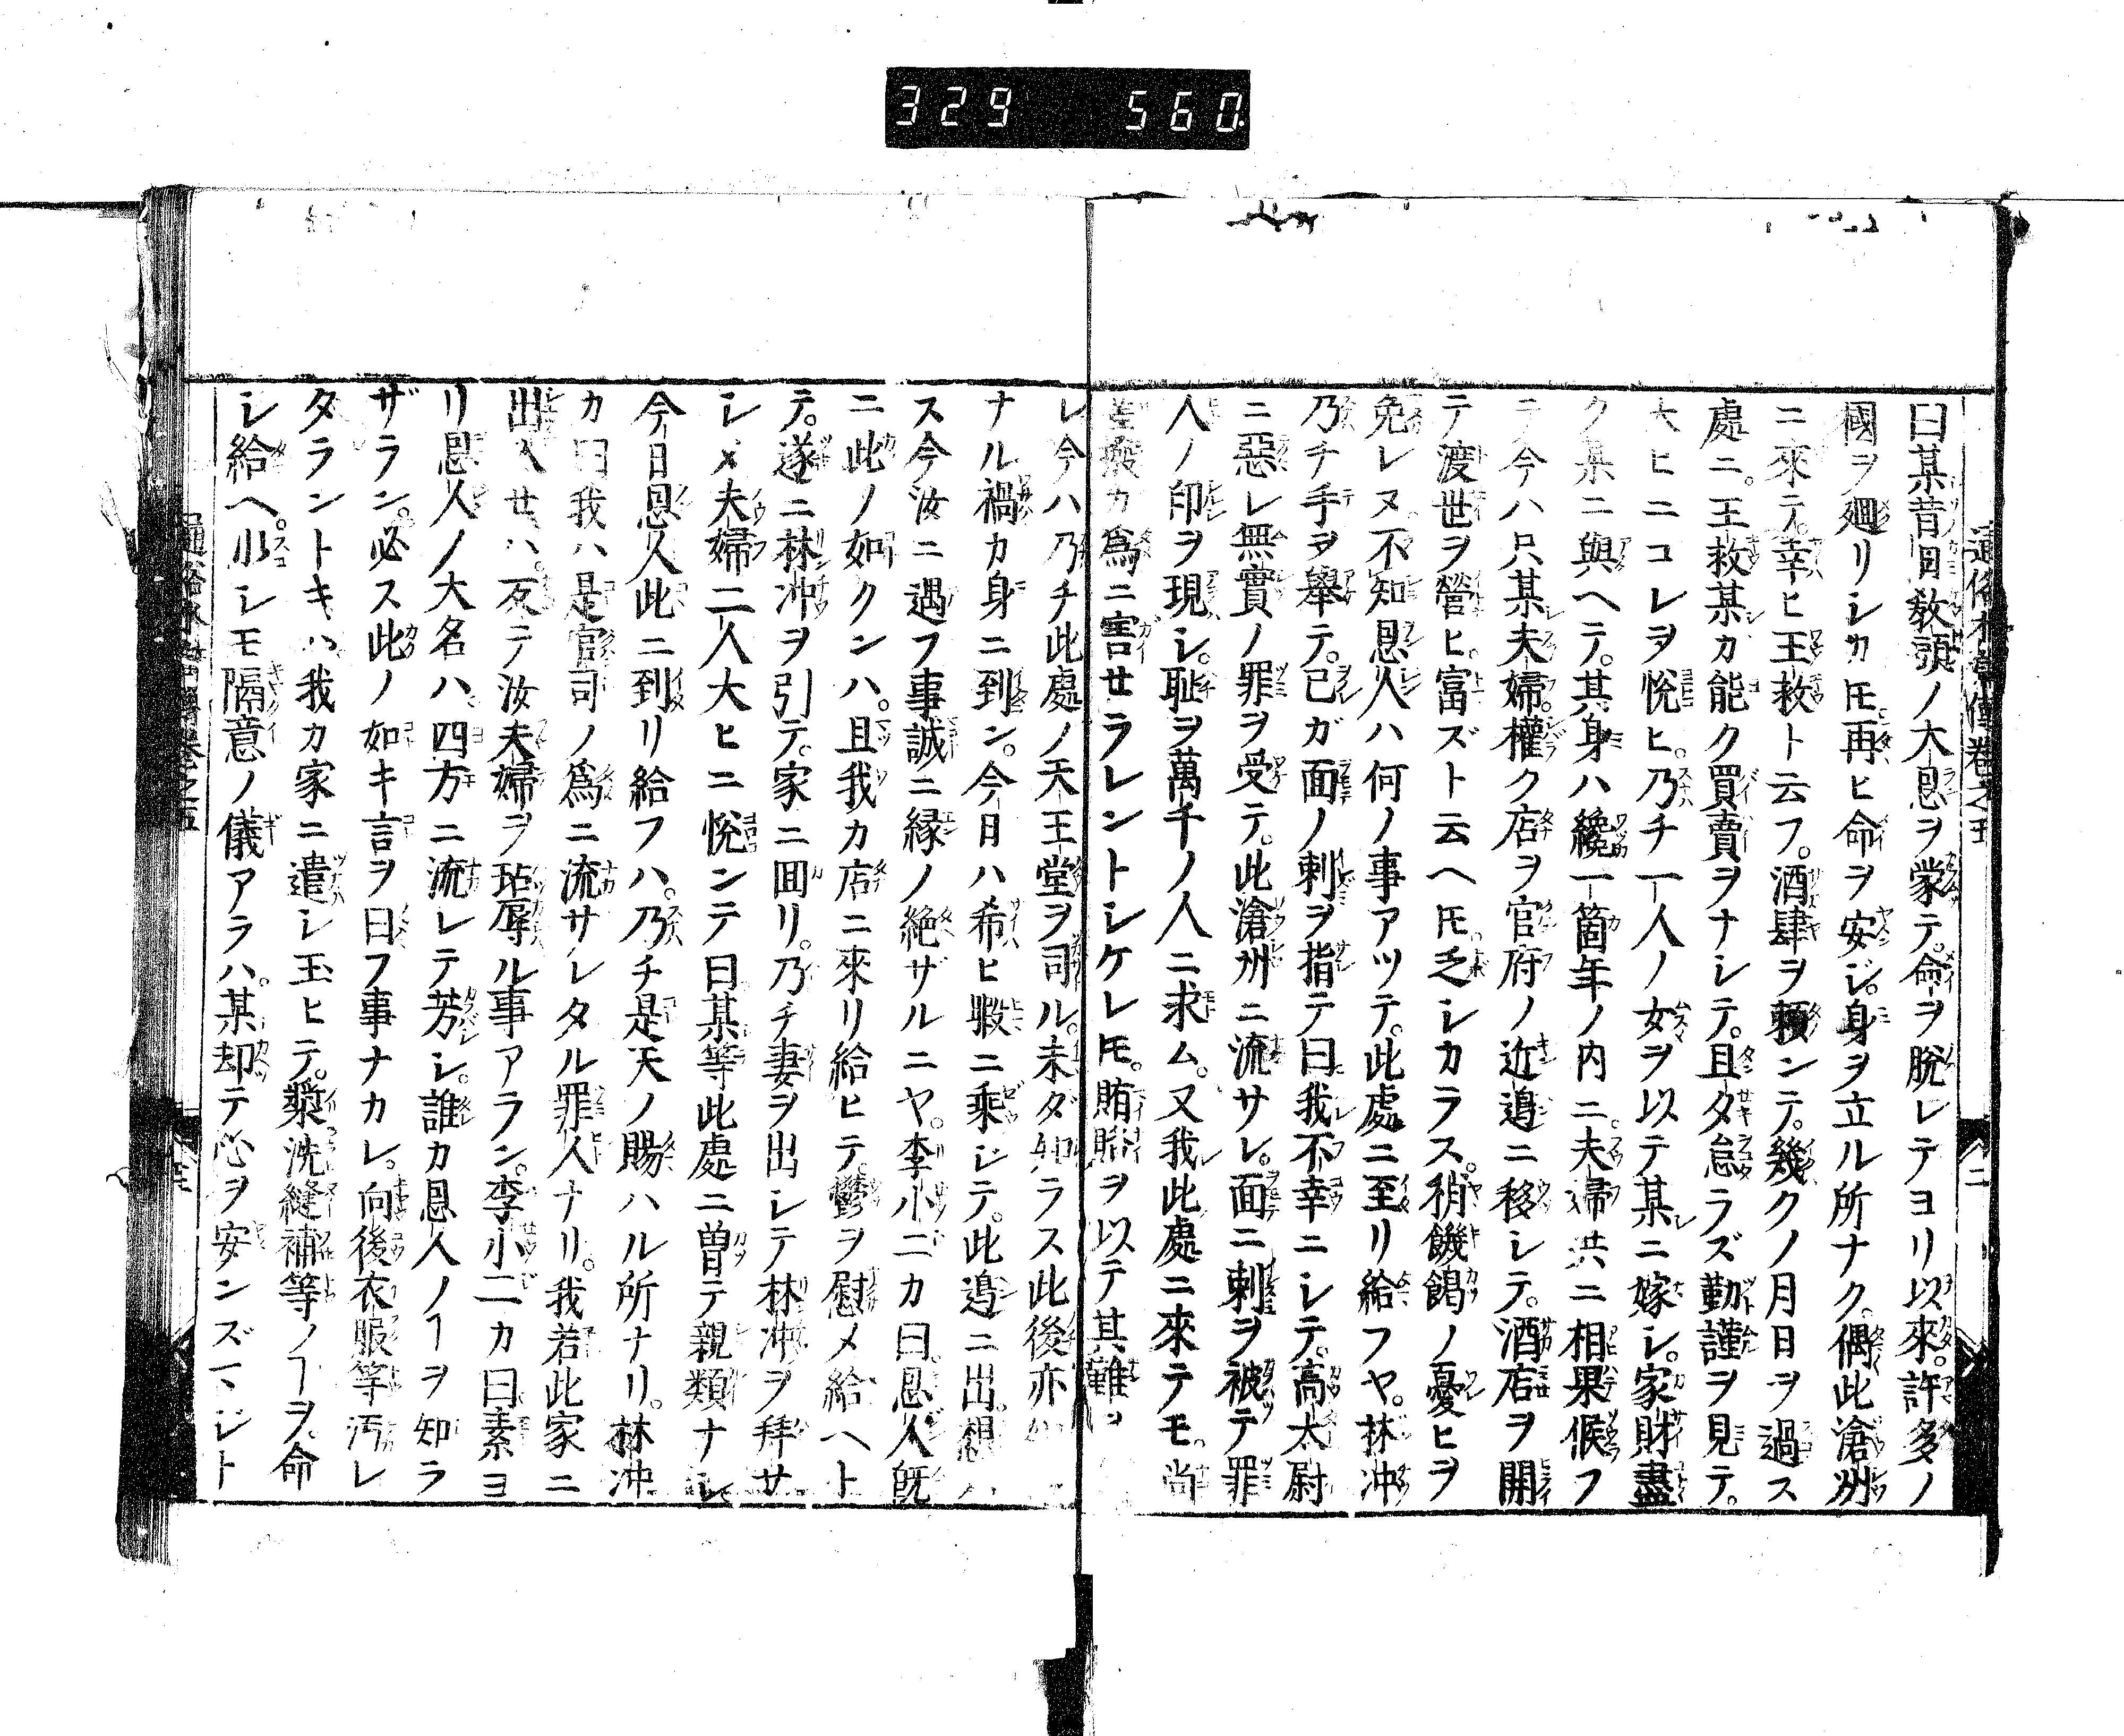 329 560
曰某昔日敎頭ノ大恩ヲ蒙テ。命ヲ脫レテヨリ以來。許多ノ
國ヲ廻リシカ𪜈。再ヒ命ヲ安ジ。身ヲ立ル所ナク。偶此滄州
ニ來テ。幸ヒ王救ト云フ。酒肆ヲ賴ンテ。幾クノ月日ヲ過ス
處ニ。王救某カ能ク買賣ヲナシテ。且タ怠ラズ勤謹ヲ見テ。
大ヒニコレヲ悅ヒ。乃チ一人ノ女ヲ以テ某ニ嫁シ。家財盡
ク某ニ與ヘテ。其身ハ纔一箇年ノ内ニ。夫婦共ニ相果候フ
テ今ハ只某夫婦權ク店ヲ官府ノ近邉ニ移シテ。酒店ヲ開
テ渡世ヲ營ヒ。富ズト云ヘ𪜈。乏シカラス。稍饑餲ノ憂ヒヲ
免レヌ不知恩人ハ何ノ事アツテ。此處ニ至リ給フヤ。林冲
乃チ手ヲ舉テ。己ガ面ノ刺ヲ指テ曰我不幸ニシテ。高太尉
ニ惡レ無實ノ罪ヲ受テ。此滄州ニ流サレ。面ニ刺ヲ被テ罪
人ノ印ヲ現シ。耻ヲ萬千ノ人ニ求ム。又我此處ニ來テモ。尚
差撥カ爲ニ害セラレントシケレ𪜈。賄賂ヲ以テ其難ヲ
レ今ハ乃チ此處ノ天王堂ヲ司ル。未ダ知ラス此後亦
ナル禍カ身ニ到ン。今日ハ希ヒ暇ニ乘シテ。此邉ニ出。想ハ
ス今汝ニ遇フ事誠ニ緣ノ絶ザルニヤ。李小二カ曰。恩人既
ニ此ノ如クンハ。且我カ店ニ來リ給ヒテ。鬱ヲ慰メ給ヘト
テ。遂ニ林冲ヲ引テ。家ニ囬リ。乃チ妻ヲ出シテ林冲ヲ拜サ
シメ夫婦二人大ヒニ悅ンテ曰某等此處ニ曽テ親類ナシ
今日恩人此ニ到リ給フハ。乃チ是天ノ賜ハル所ナリ。林冲
カ曰我ハ是官司ノ爲ニ流サレタル罪人ナリ。我若此家ニ
出入セハ。反テ汝夫婦ヲ玷辱ル事アラン。李小二カ曰素ヨ
リ恩人ノ大名ハ。四方ニ流レテ芳シ。誰カ恩人ノヿヲ知ラ
ザラン。必ス此ノ如キ言ヲ曰フ事ナカレ。向後衣服等汚レ
タラントキハ我カ家ニ遣シ玉ヒテ。漿洗縫補等ノヿヲ。命
シ給ヘ。少シモ隔意ノ儀アラハ。某却テ心ヲ安ンズマジト
通俗水滸傳卷之五
二
通俗水滸傳卷之五
三